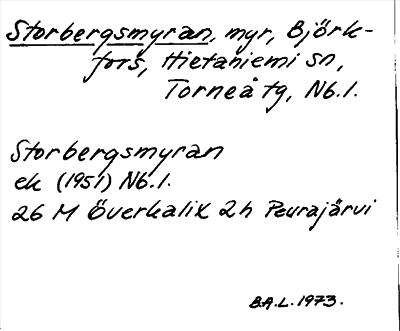 Storbergsmyran, myr, Björk-
fors, Hietaniemi sn,
Torneå tg, Nb.l.
Storbergsmyran
ek (1951) Nb.l.
26 M Överkalix 2h Peurajärvi
B.A.L. 1973.